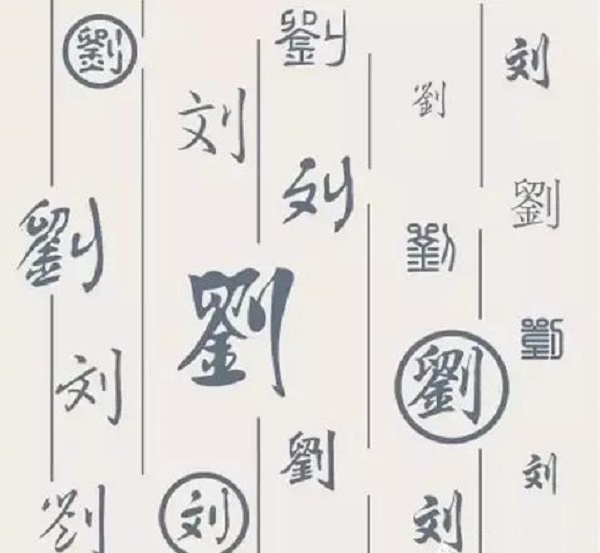 劉 劉 刘
刘 劉
刘 劉
劉 劉
劉 劉
刘 劉
劉 刘
劉 刘 刘